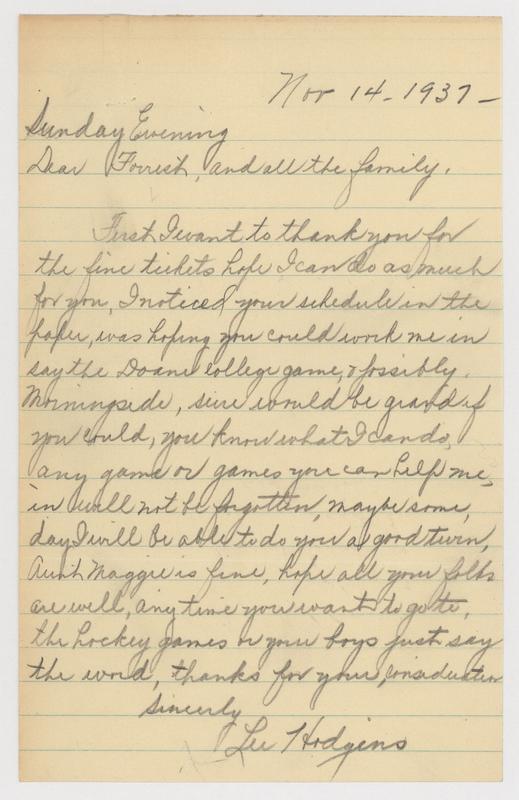 Nov 14 - 1937 -
Sunday Evening
Dear Forrest, and all the family.
First I want to thank you for
the fine tickets hope I can do as much
for you, I noticed your schedule in the
paper, was hoping you could work me in
say the Doane College game, & possibly
Morningside, sure would be grand if
you could, you know what I can do,
any game or games you can help me,
in will not be forgotten, maybe some,
day I will be able to do you a good turn,
Aunt Maggie is fine, hope all your folks
are well, any time you want to go to,
the hockey games or your boys just say
the word, thanks for your consideration
Sincerly
Lee Hodgins